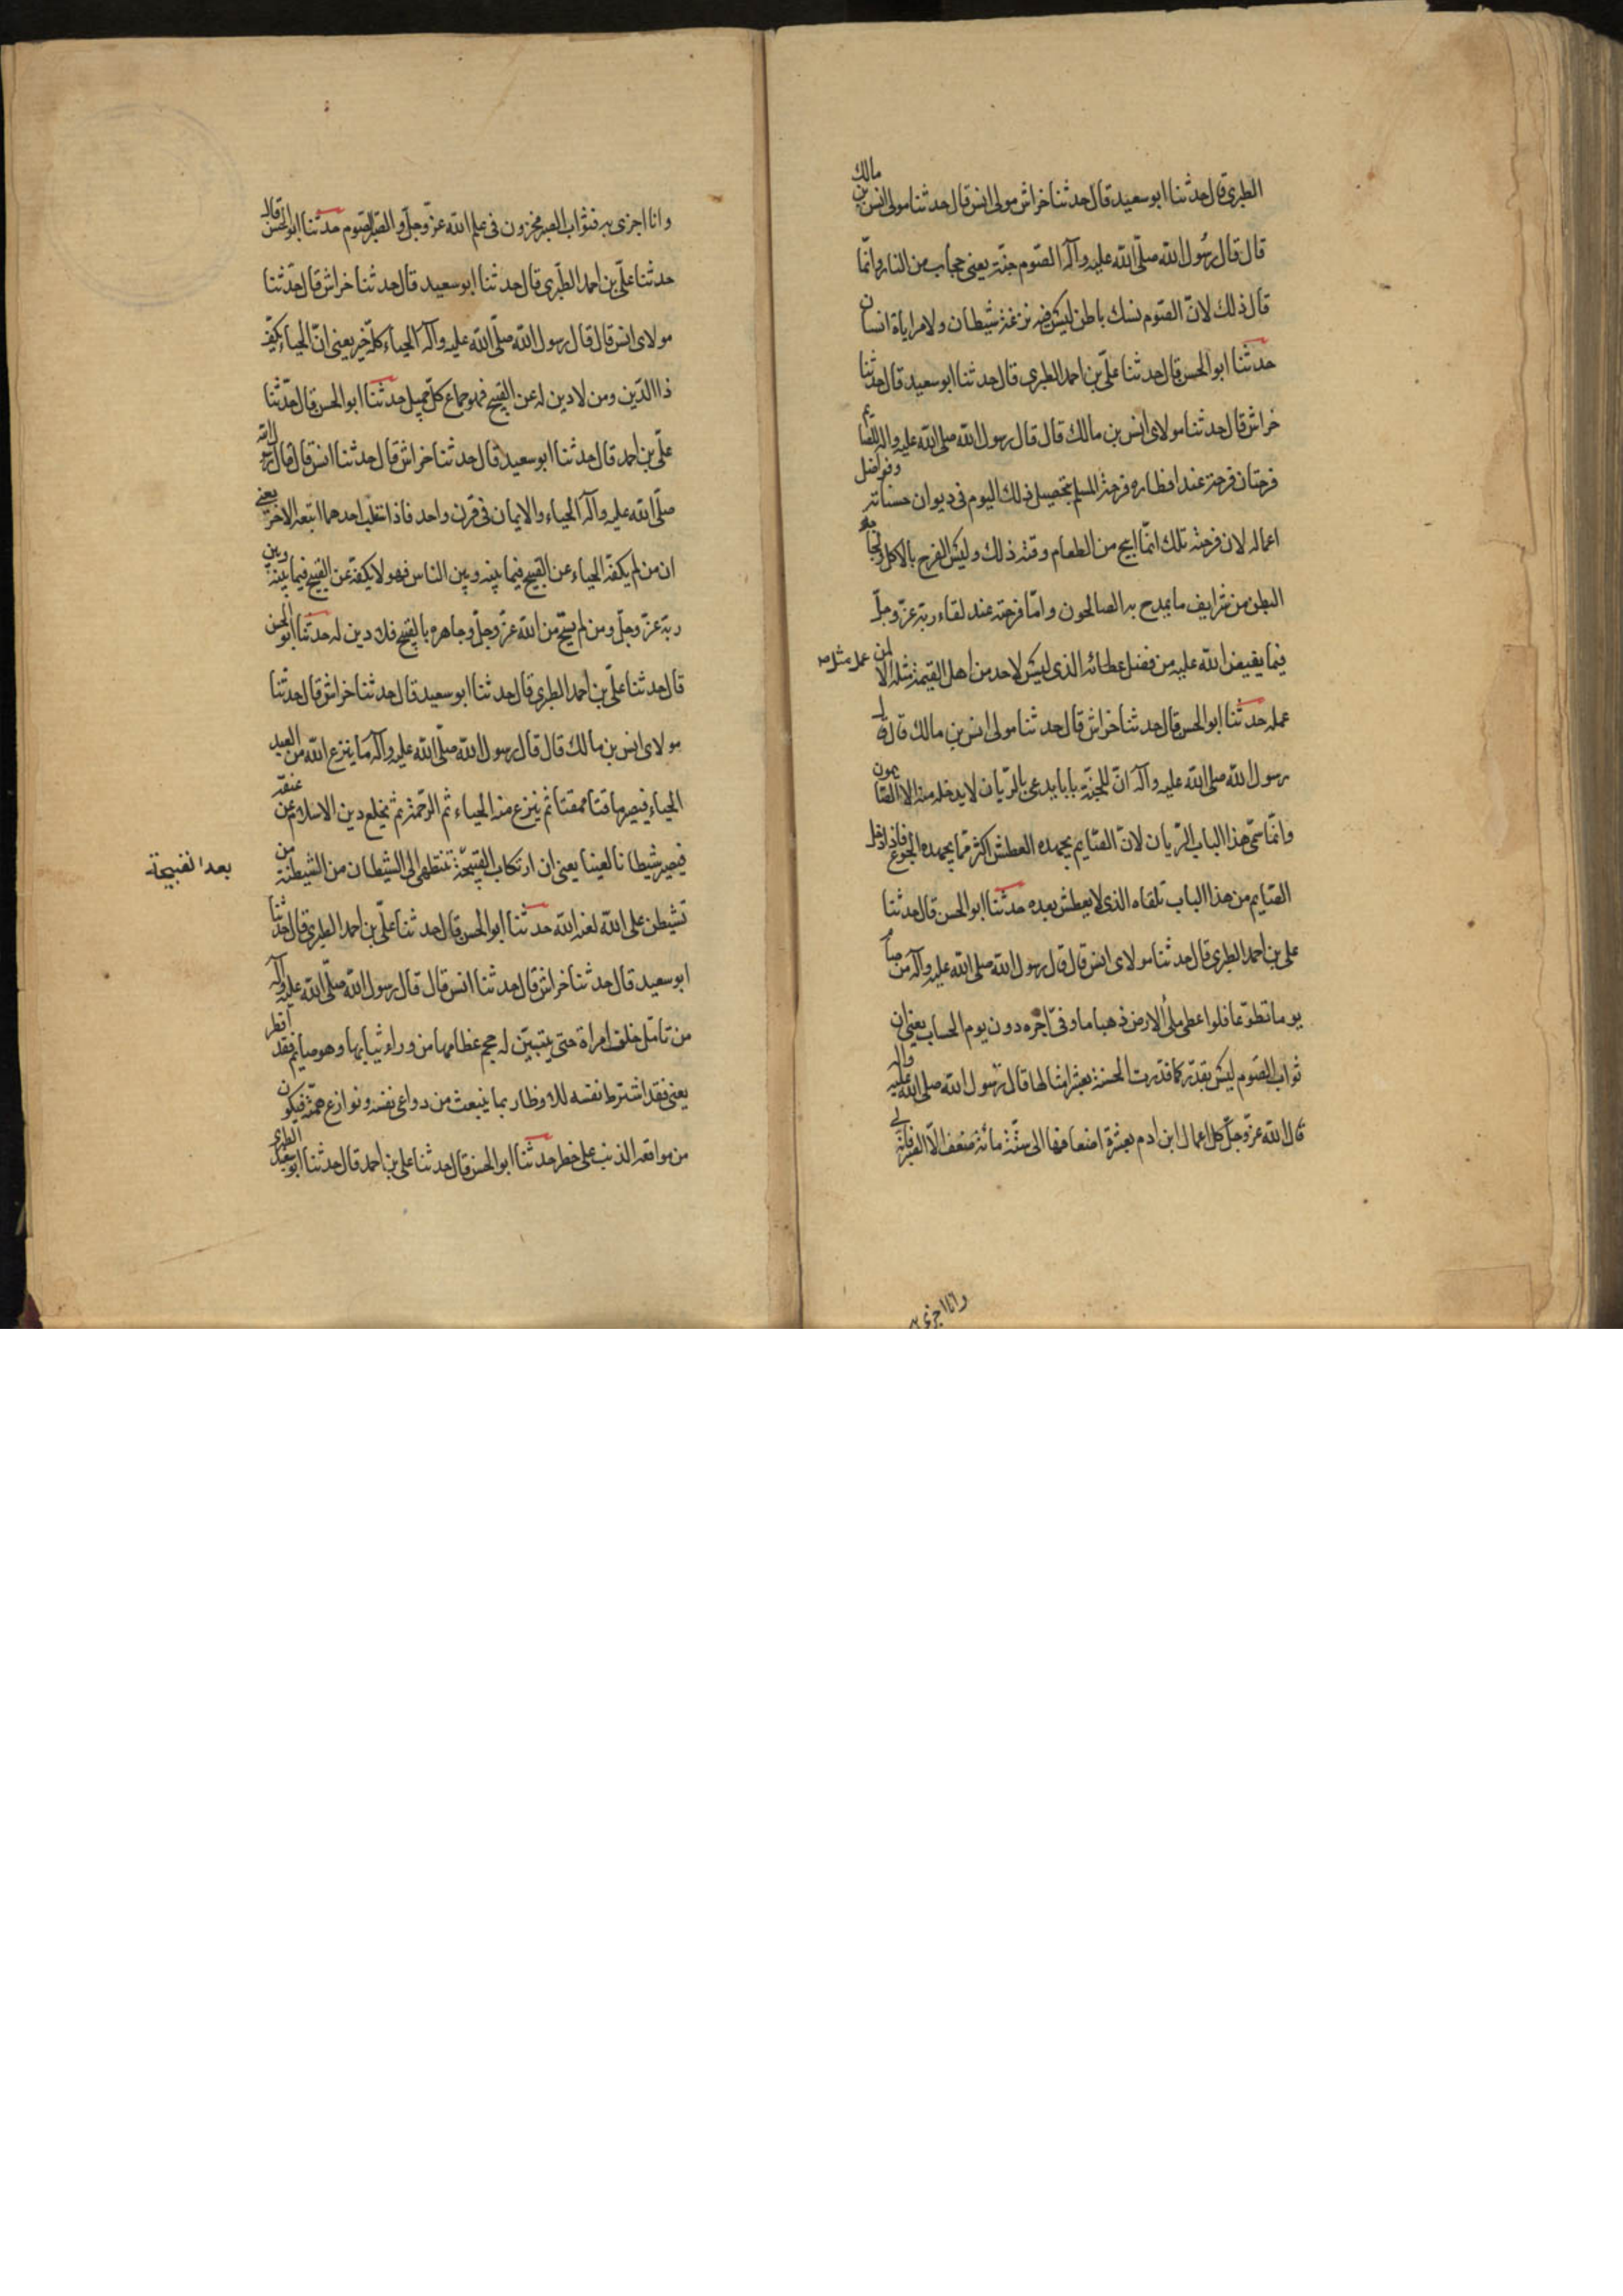 الطبرى قال حدثنا ابو سعيد قال حدثنا خراش مولى انس قال حدثنا مولى انس بن مالك
قال قال رسول الله صلّى الله عليه وآله الصّوم جنّة يعنى حجاب من النار وانّما
قال ذلك لانّ الصّوم نسك باطن ليس فيه نزغة شيطان ولا مراياة انسان
حدثنا ابو الحسن قال حدثنا علىّ بن احمد الطبرى قال حدثنا ابو سعيد قال حدثنا
خراش قال حدثنا مولاى انس بن مالك قال قال رسول الله صلى الله عليه واله للصايم
فرحتان فرحة عند افطاره فرحة المسلم بتحصيل ذلك اليوم فى ديوان حسناته وفواضل
اعماله لان فرحته تلك انمّا ابيح من الطعام وقته ذلك وليس الفرح بالاكل
البطن من شرايف ما يمدح به الصالحون وامّا فرحته عند لقاء ربّه عزّ وجلّ
فيما يفيض الله عليه من فضل عطائه الذى ليس لاحد من اهل القيمة مثله الا لمن عمل مثل
عمله حدثنا ابو الحسن قال حدثنا خراش قال حدثنا مولى انس بن مالك قال قال
رسول الله صلى الله عليه وآله انّ للجنّة بابا يدعى بالرّيان لا يدخله منه الا الصّايمون
وانّما سمّى هذا الباب الرّيان لانّ الصّايم يجهده العطش اكثر ممّا يجهده الجوع فاذا دخل
الصّايم من هذا الباب تلقاه الذى لا يعطش بعده حدثنا ابو الحسن قال حدثنا
على بن احمد الطبرى قال حدثنا مولاى انس قال قال رسول الله صلى الله عليه وآله من صام
يوما تطوّعا فلو اعطى ملأ الارض ذهبا ما وفّى اجره دون يوم الحساب يعنى ان
ثواب الصّوم ليس بقدّر كما قدّرت الحسنة بعشر امثالها قال رسول الله صلى الله عليه واله
قال الله عزّ وجلّ كل اعمال ابن ادم بعشرة اضعافها الى ستّة مائة ضعف الّا الصبر فانّه لى
وانا اجزى به
وانا اجزى به فثواب الصبر مخزون فى علم الله عزّ وجلّ والصّبر الصّوم حدثنا ابو الحسن قال
حدثنا علىّ بن احمد الطبّرى قال حدثنا ابو سعيد قال حدثنا خراش قال حدّثنا
مولاى انس قال قال رسول الله صلّى الله عليه وآله الحياء كلّه خير يعنى انّ الحياء يكفّ
ذا الدّين ومن لا دين له عن القبيح فهو جماع كلّ جميل حدثنا ابو الحسن قال حدّثنا
علىّ بن احمد قال حدثنا ابو سعيد قال حدثنا خراش قال حدثنا انس قال قال رسول الله
صلّى الله عليه وآله الحياء والايمان فى قرن واحد فاذا سلب احدهما اتبعه الاخر يعنى
ان من لم يكفّه الحياء عن القبيح فيما بينه وبين الناس فهو لا يكفّه عن القبيح فيما بينه وبين
ربّه عزّ وجلّ ومن لم يستح من الله عزّ وجلّ وجاهره بالقبيح فلا دين له حدثنا ابو الحسن
قال حدثنا علىّ بن احمد الطبرى قال حدثنا ابو سعيد قال حدثنا خراش قال حدثنا
مولاى انس بن مالك قال قال رسول الله صلّى الله عليه وآله ما ينزع الله من العبد
الحياء فيصير ماقتا ممقتا ثم ينزع منه الحياء ثم الرّحمة ثم يخلع دين الاسلام عن عنقه
فيصير شيطانا لعينا يعنى ان ارتكاب القبيحة تنتهى الى الشيطان من الشيطنة من
بعد القبيحة
تشيطن على الله لعنه الله حدثنا ابو الحسن قال حدثنا علىّ بن احمد الطبرى قال حدثنا
ابو سعيد قال حدثنا خراش قال حدثنا انس قال قال رسول الله صلّى الله عليه وآله
من تأمّل خلف امراة حتى يتبيّن له حجم عظامها من وراء ثيابها وهو صايم فقد افطر
يعنى فقد اشترط نفسه للافطار بما ينبعث من دواعى نفسه ونوازع همّته فيكون
من مواقعه الذنب على خطر حدثنا ابو الحسن قال حدثنا على بن احمد قال حدثنا ابو سعيد الطبرى